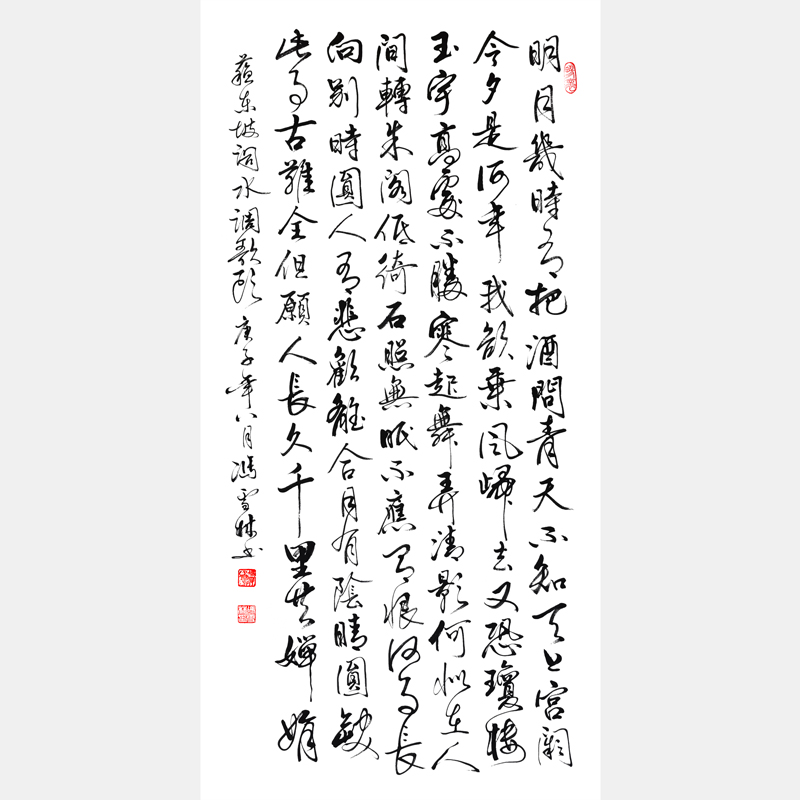 明月幾時有把酒問青天不知天上宮闕
今夕是何年我欲乘風歸去又恐瓊樓
玉宇高處不勝寒起舞弄清影何似在人
間轉朱閣低綺石照無眠不應有恨何事長
向别時圓人有悲歡離合月有陰晴圓缺
此事古難全但願人長久千里共嬋娟
蘇東坡詞水調歌頭 庚子年八月馮雪林書